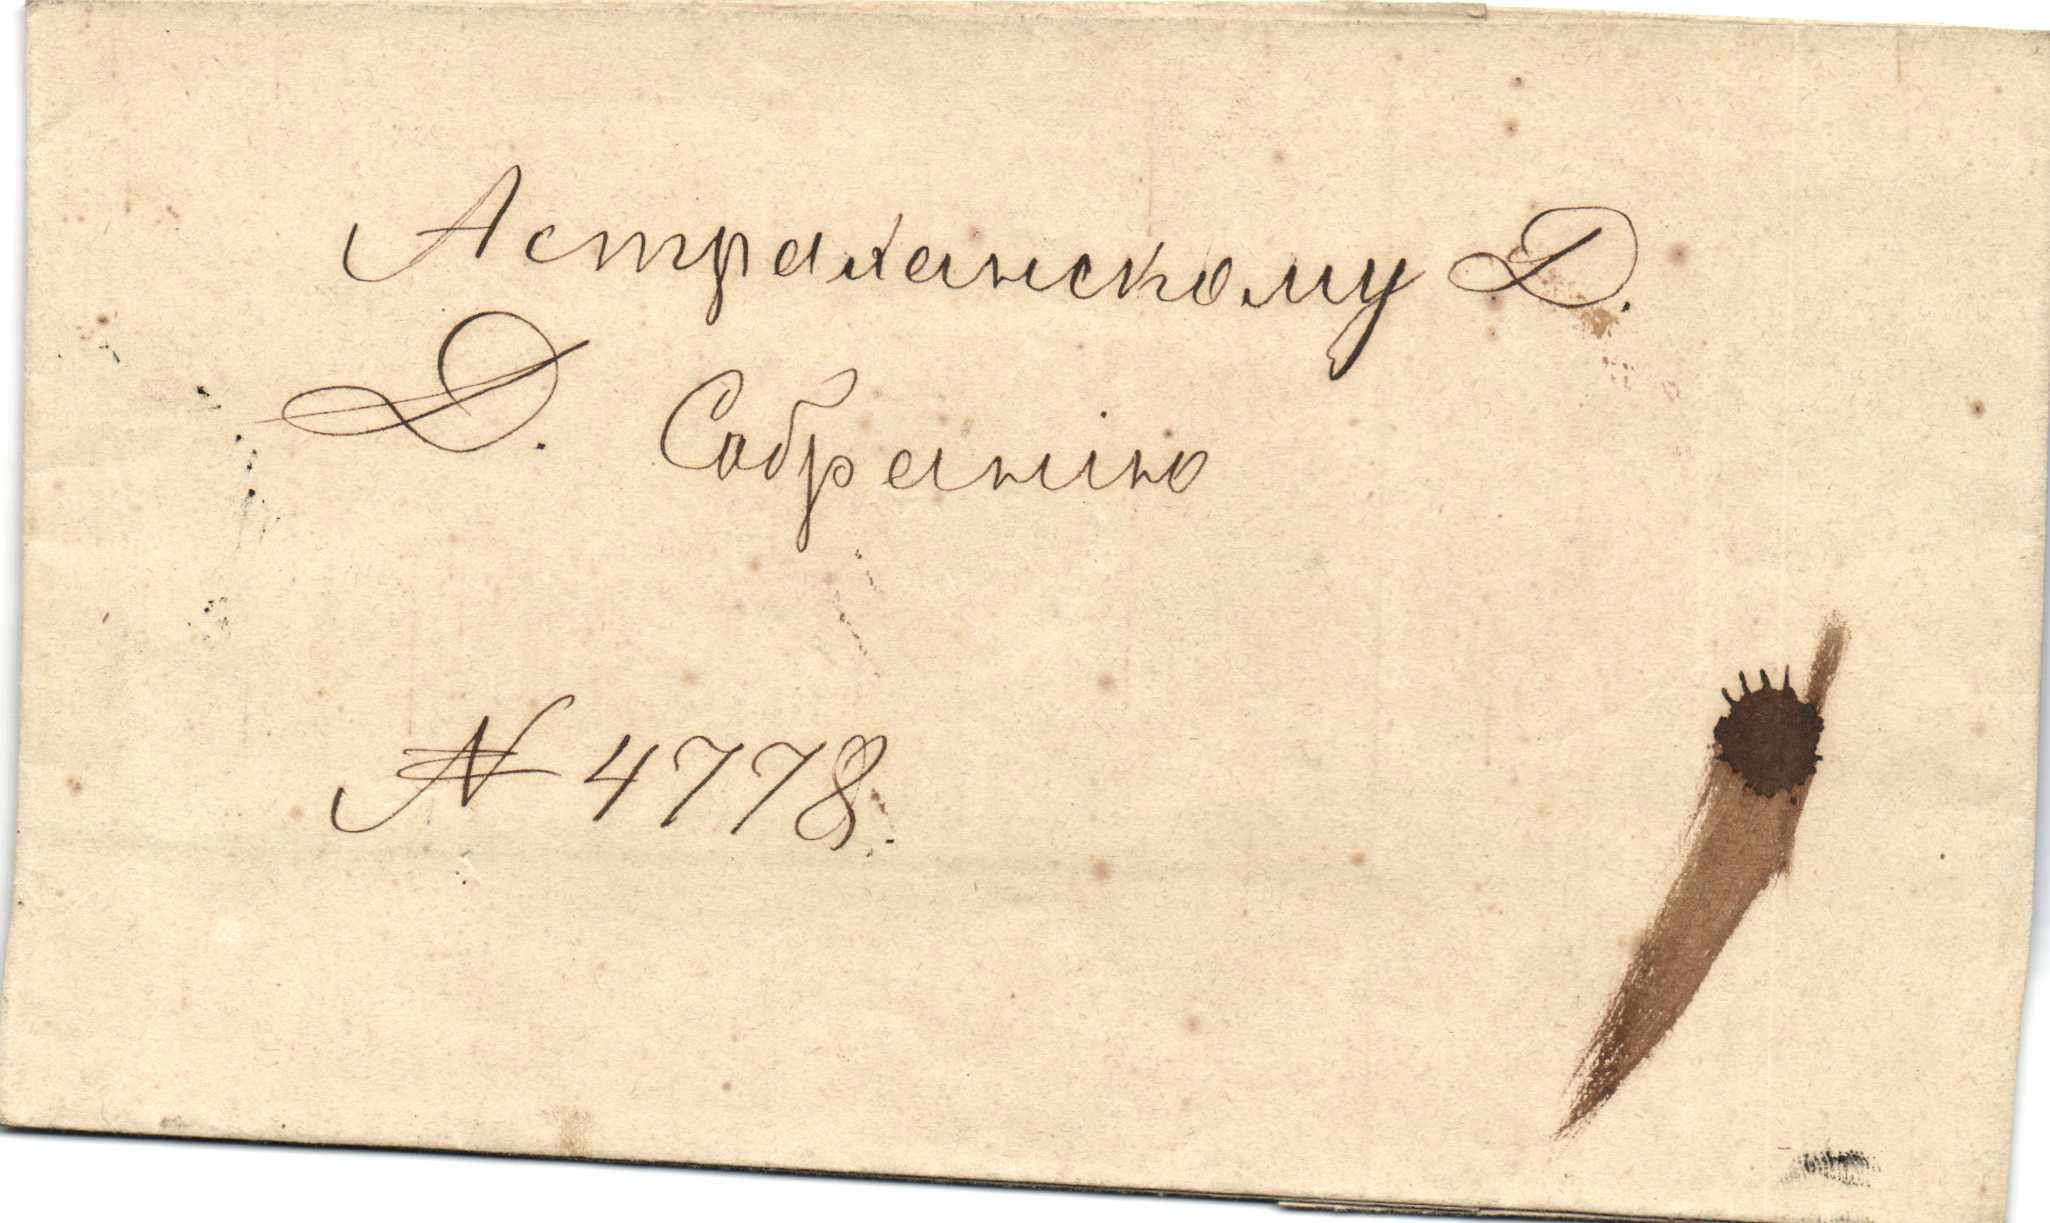 Астраханскому Д.
Д. Собранію
№ 4778.